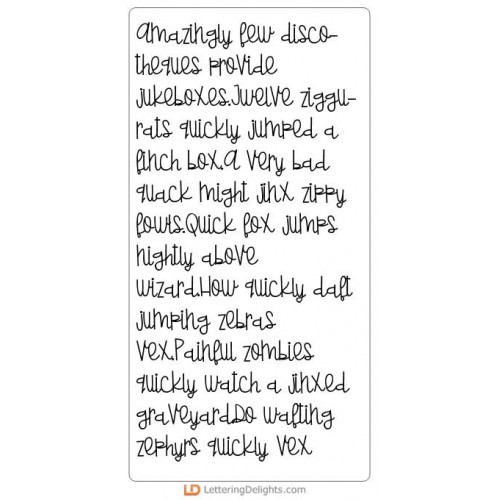 Amazingly few disco-
theques provide
jukeboxes.Twelve ziggu-
rats quickly jumped a
finch box.A very bad
quack might jinx zippy
fowls.Quick fox jumps
nightly above
wizard.How quickly daft
jumping zebras
vex.Painful zombies
quickly watch a jinxed
graveyard.Do wafting
zephyrs quickly vex
LD LetteringDelights.com